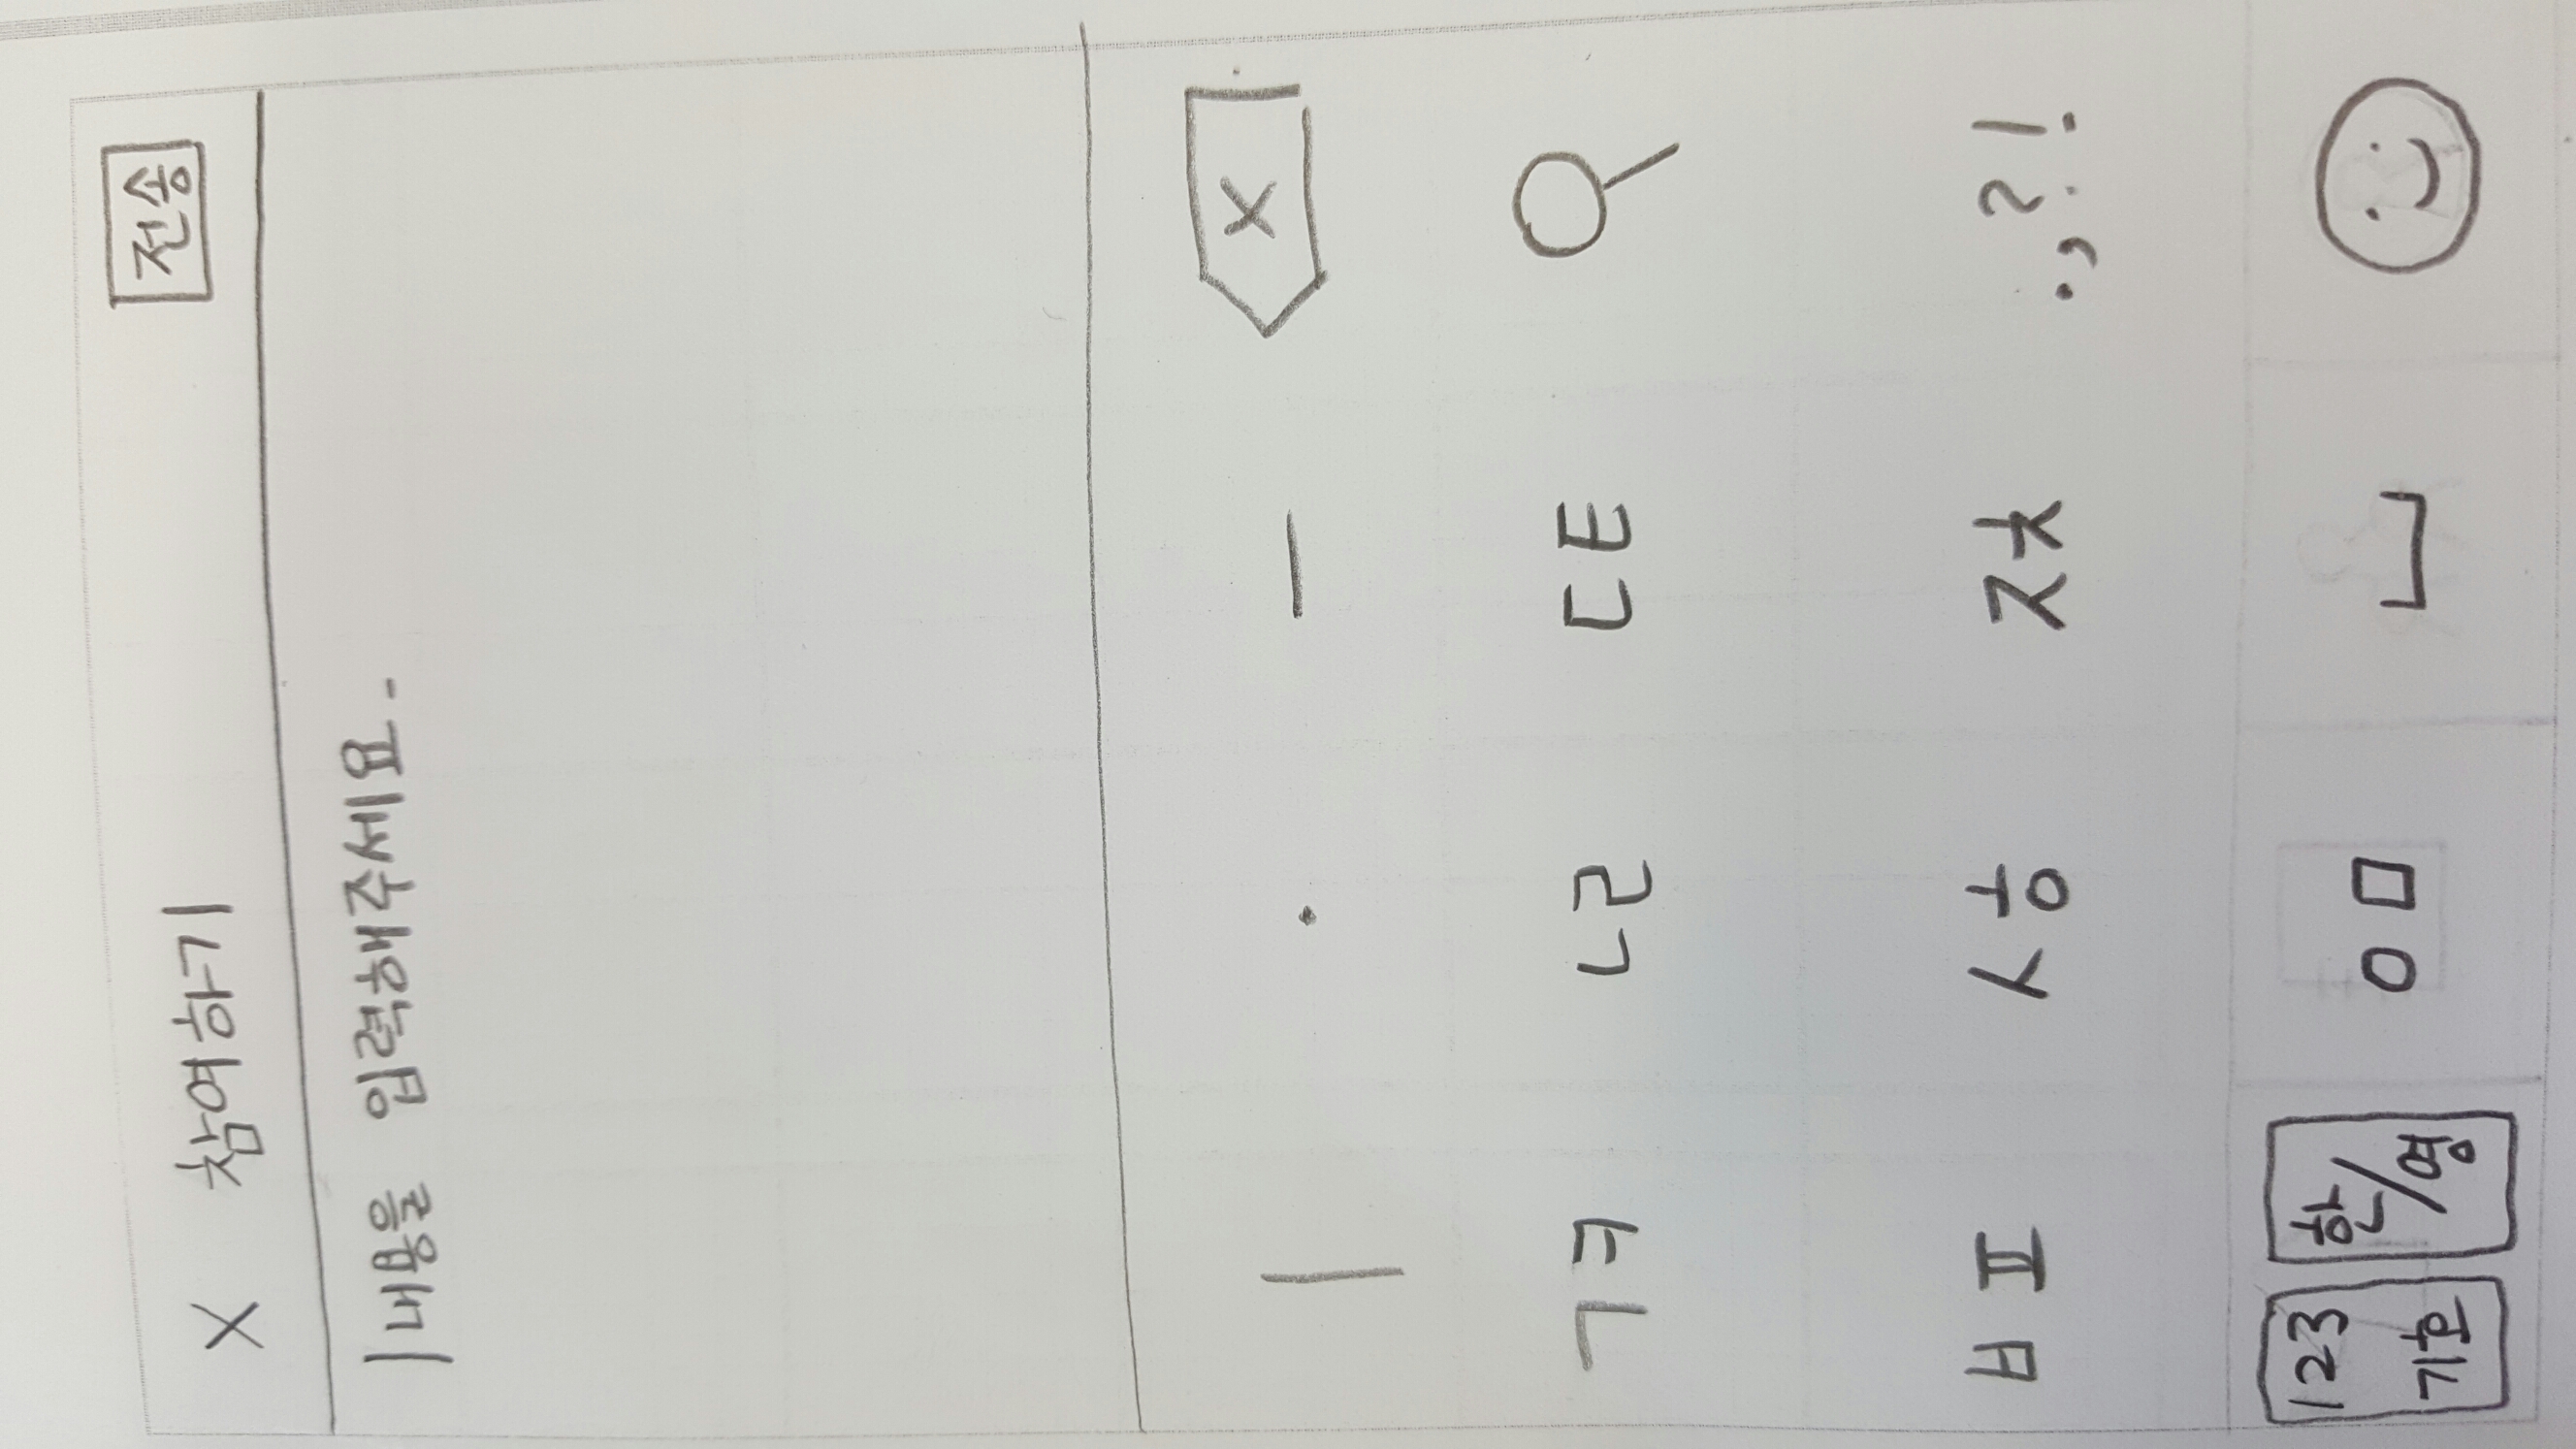 X 참여하기 전송
내용을 입력해주세요.
ㅣ · ㅡ X
ㄱㅋ ㄴㄹ ㄷㅌ
ㅂㅍ ㅅㅎ ㅈㅊ .,?!
123 기호 한/영 ㅇㅁ